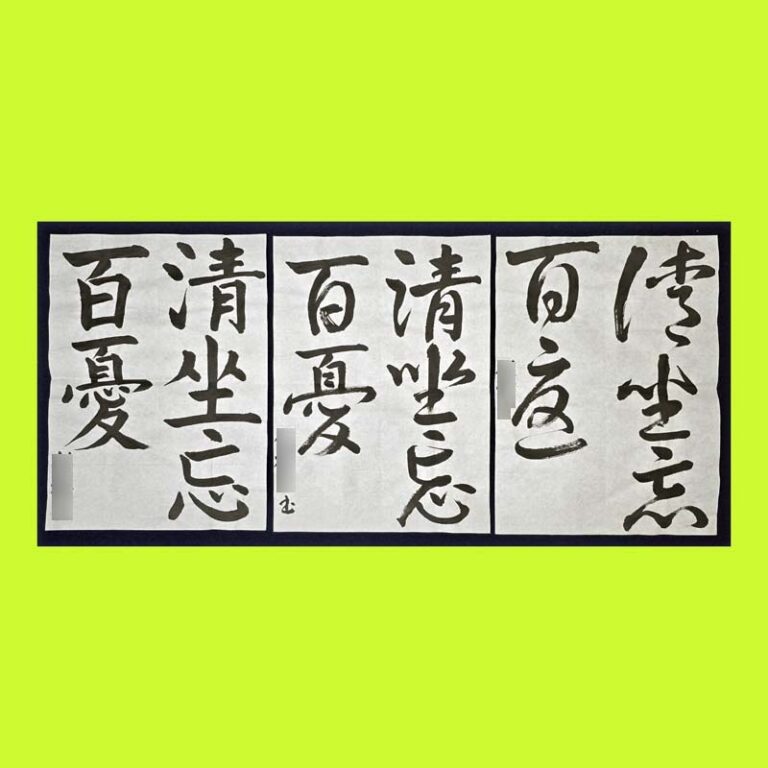 清坐忘
百憂
清坐忘
百憂
清坐忘
百憂